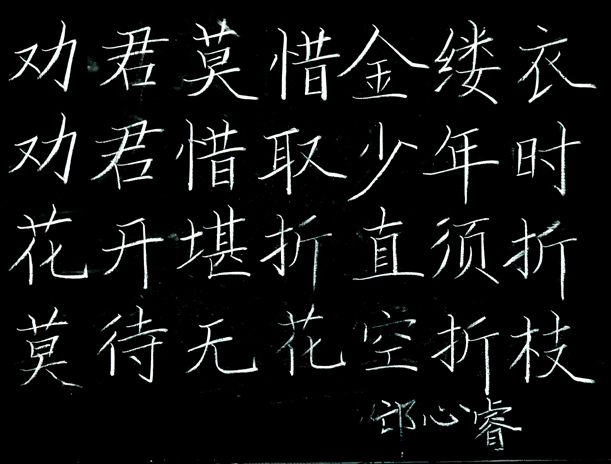 劝君莫惜金缕衣
劝君惜取少年时
花开堪折直须折
莫待无花空折枝
邵心睿